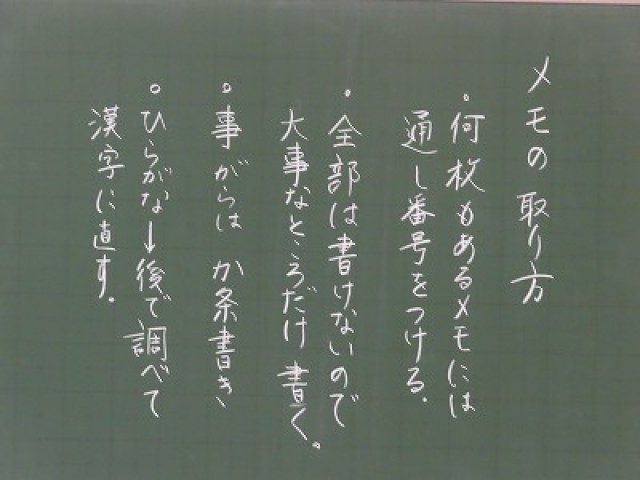 メモの取り方
。何枚もあるメモには
通し番号をつける.
。全部は書けないので
大事なところだけ書く。
。事がらはか条書き
。ひらがな→後で調べて
漢字に直す。